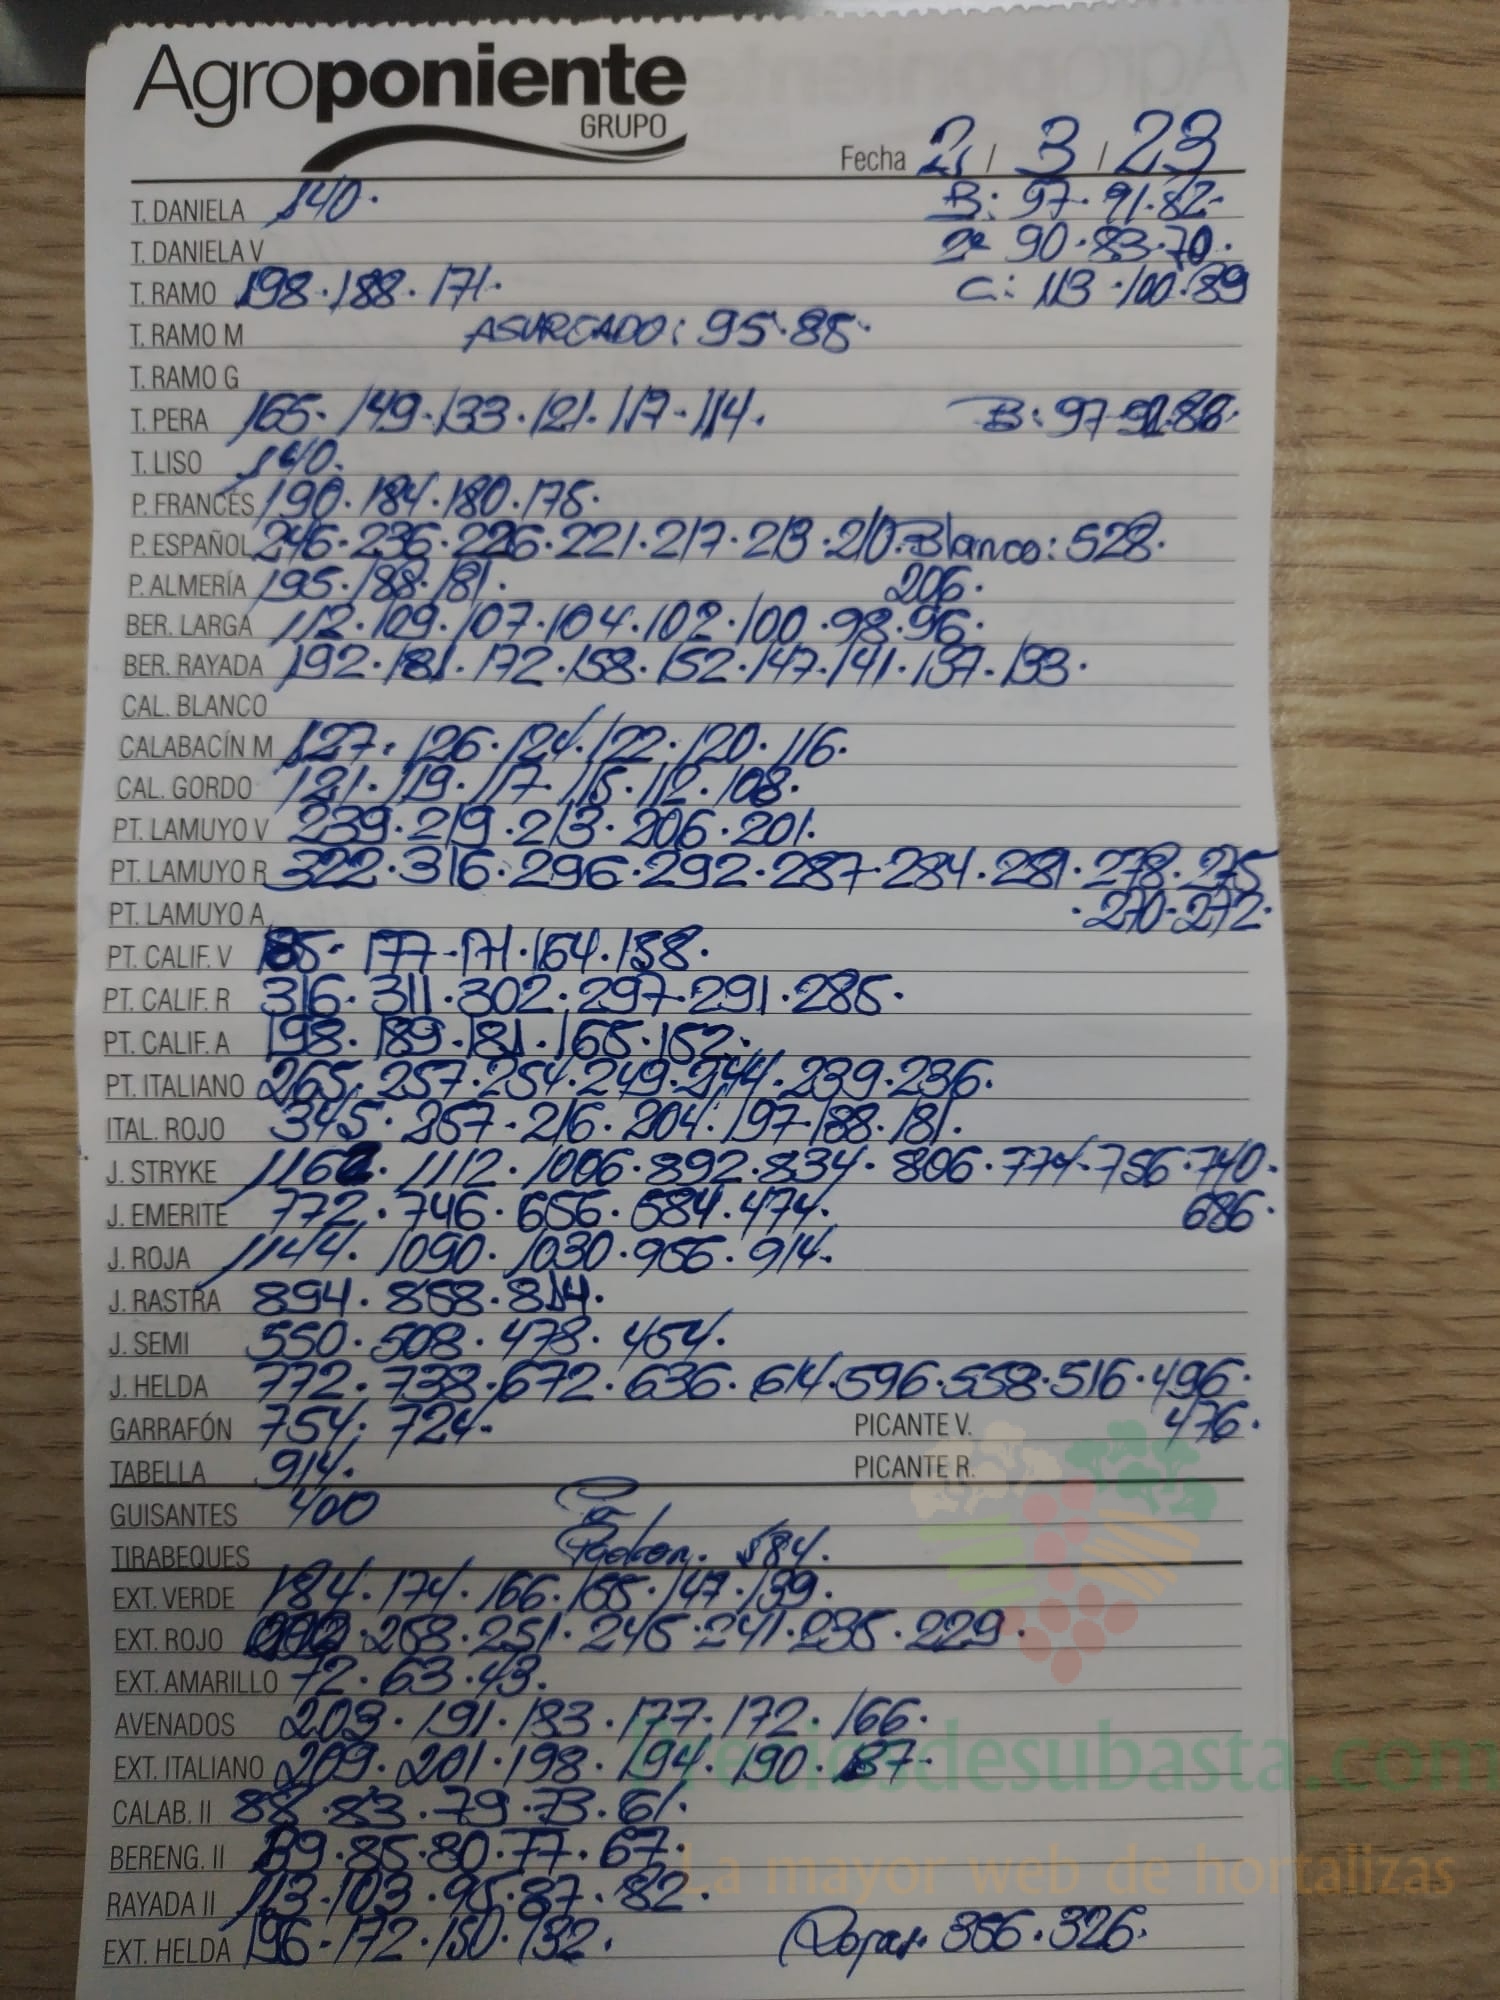 Agroponiente
GRUPO
Fecha 2 / 3 / 23
T. DANIELA 140. B: 97. 91. 82.
T. DANIELA V 2ª 90. 83. 70.
T. RAMO 198. 188. 171. C: 113. 100. 89
T. RAMO M ASURCADO: 95. 85.
T. RAMO G
T. PERA 165. 149. 133. 121. 117. 114. B: 97
T. LISO 140.
P. FRANCÉS 190. 184. 180. 175.
P. ESPAÑOL 246. 236. 226. 221. 217. 213. 210. Blanco: 528.
P. ALMERÍA 195. 188. 181. 206.
BER. LARGA 112. 109. 107. 104. 102. 100. 98. 96.
BER. RAYADA 192. 181. 172. 158. 152. 147. 141. 137. 133.
CAL. BLANCO
CALABACÍN M 127. 126. 124. 122. 120. 116.
CAL. GORDO 121. 119. 117. 115. 112. 108.
PT. LAMUYO V 239. 219. 213. 206. 201.
PT. LAMUYO R 322. 316. 296. 292. 287. 284. 281. 278. 275
PT. LAMUYO A . 270. 272.
PT. CALIF. V 185. 177. 171. 164. 158.
PT. CALIF. R 316. 311. 302. 297. 291. 285.
PT. CALIF. A 198. 189. 181. 165. 152.
PT. ITALIANO 265. 257. 254. 249. 244. 239. 236.
ITAL. ROJO 345. 257. 216. 204. 197. 188. 181.
J. STRYKE 1162. 1112. 1006. 892. 834. 806. 774. 756. 740.
J. EMERITE 772. 746. 656. 584. 474. 686.
J. ROJA 1144. 1090. 1030. 956. 914.
J. RASTRA 894. 858. 814.
J. SEMI 550. 508. 478. 454.
J. HELDA 772. 738. 672. 636. 614. 596. 558. 516. 496.
GARRAFÓN 754. 724. PICANTE V. 476.
TABELLA 914. PICANTE R.
GUISANTES 400
TIRABEQUES Padron. 584.
EXT. VERDE 184. 174. 166. 155. 147. 139.
EXT. ROJO 258. 251. 245. 241. 235. 229.
EXT. AMARILLO 72. 63. 43.
AVENADOS 203. 191. 183. 177. 172. 166.
EXT. ITALIANO 209. 201. 198. 194. 190. 187.
CALAB. II 88. 83. 79. 73. 61.
BERENG. II 89. 85. 80. 77. 67.
RAYADA II 113. 103. 95. 87. 82.
EXT. HELDA 196. 172. 150. 132. Rojas. 356. 326.
Preciosdesubasta.com
La mayor web de hortalizas